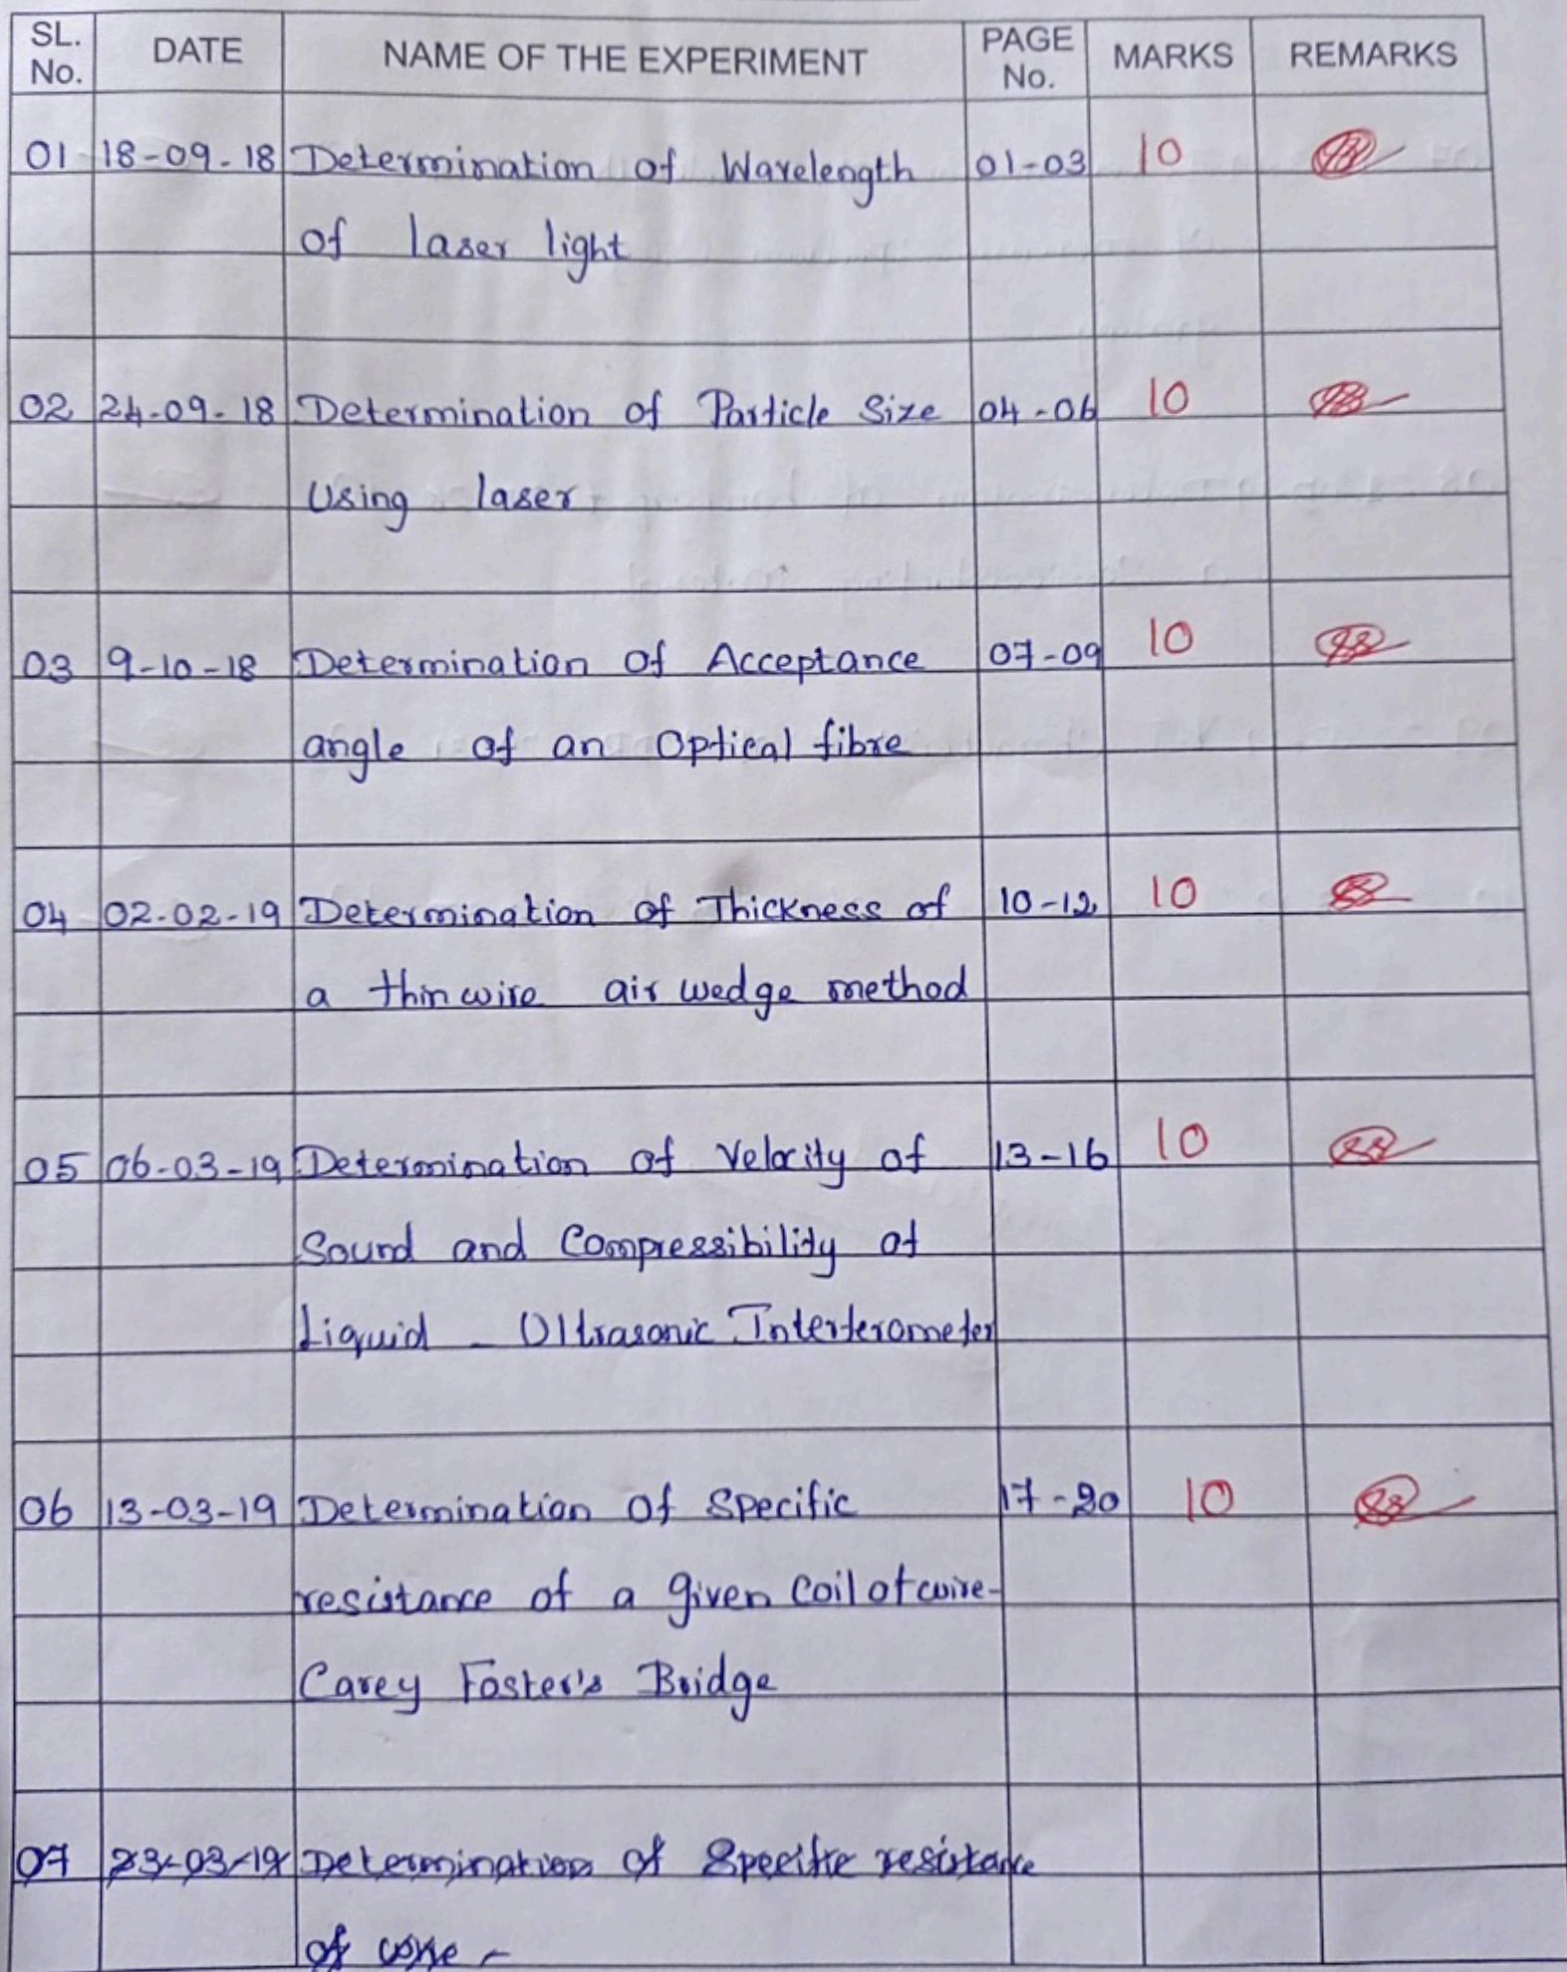 SL. No. DATE NAME OF THE EXPERIMENT PAGE No. MARKS REMARKS
01 18-09-18 Determination of Wavelength 01-03 10
of laser light
02 24-09-18 Determination of Particle Size 04-06 10
Using laser
03 9-10-18 Determination of Acceptance 07-09 10
angle of an Optical fibre
04 02-02-19 Determination of Thickness of 10-12 10
a thin wire air wedge method
05 06-03-19 Determination of Velocity of 13-16 10
Sound and Compressibility of
Liquid - Ultrasonic Interferometer
06 13-03-19 Determination of Specific 17-20 10
resistance of a given coil of wire-
Carey Foster's Bridge
07 23-03-19 Determination of Specific resistance
of wire -